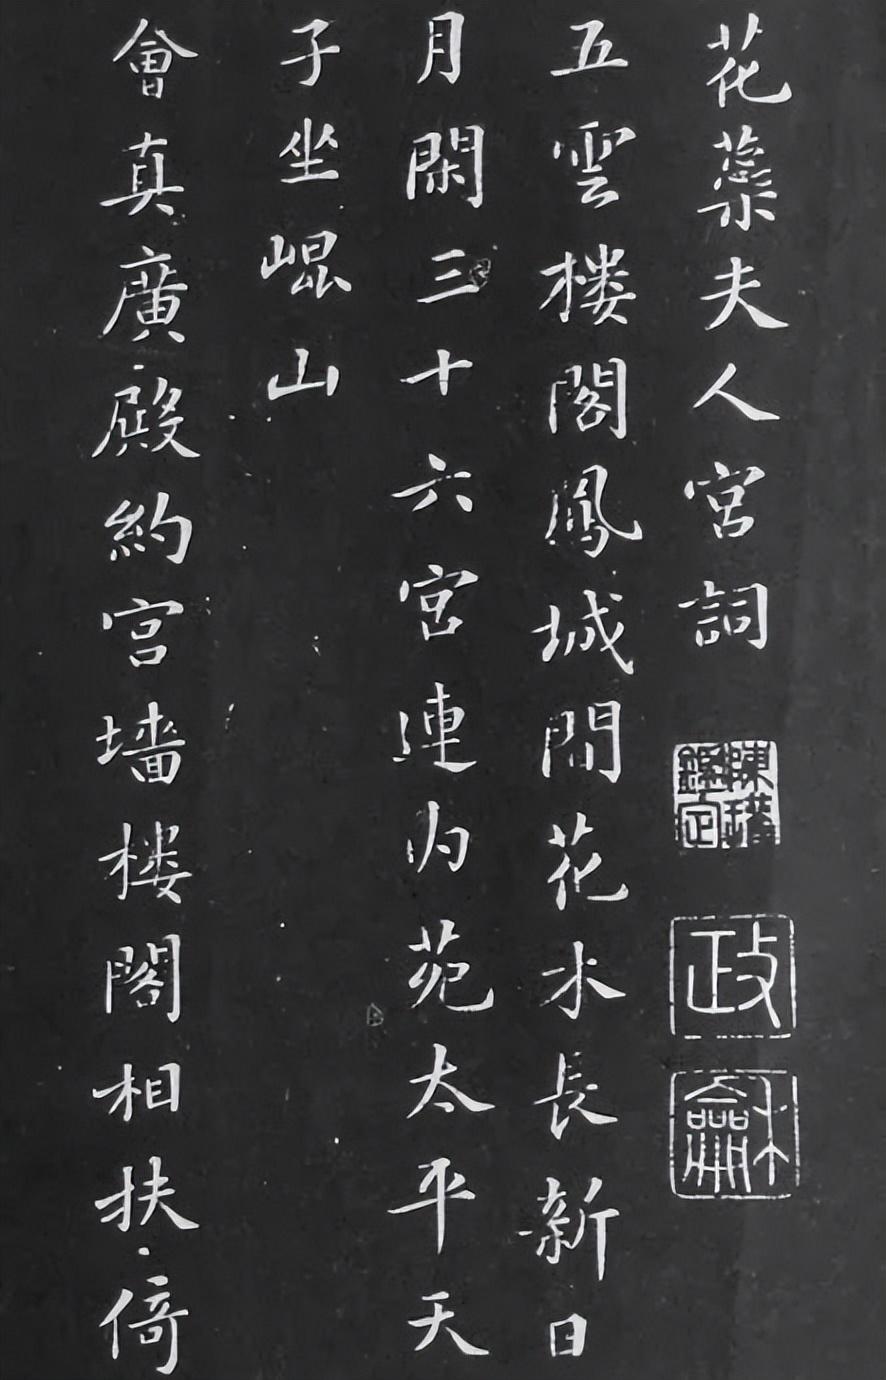 花蘂夫人宮詞
陳
鑑定
政
龢
五雲楼閣鳳城間花水長新日
月閑三十六宮連内苑太平天
子坐崐山
會真廣殿約宮墻楼閣相扶倚